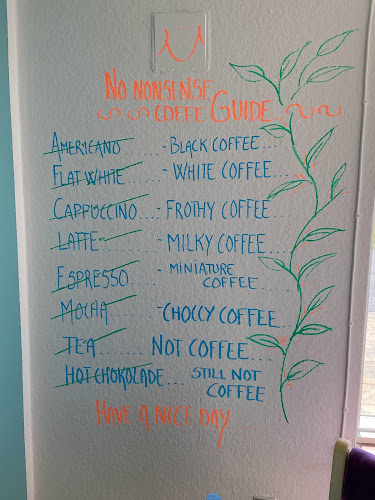 NO NONSENSE
COFFE GUIDE
AMERICANO......- BLACK COFFEE...
FLAT WHITE......- WHITE COFFEE....
CAPPUCCINO...- FROTHY COFFEE
LATTE........- MILKY COFFEE....
ESPRESSO....- MINIATURE
COFFEE.....
MOCHA........-CHOCCY COFFEE...
TEA...... NOT COFFEE....
HOT CHOKOLADE... STILL NOT
COFFEE
HAVE A NICE DAY